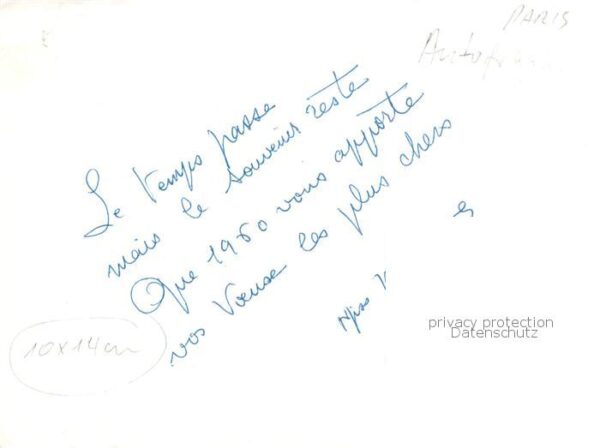 PARIS
Le temps passe
mais le souvenir reste
Que 1960 vous apporte
vos Vœux les plus chers
Miss
10x14cm
privacy protection
Datenschutz